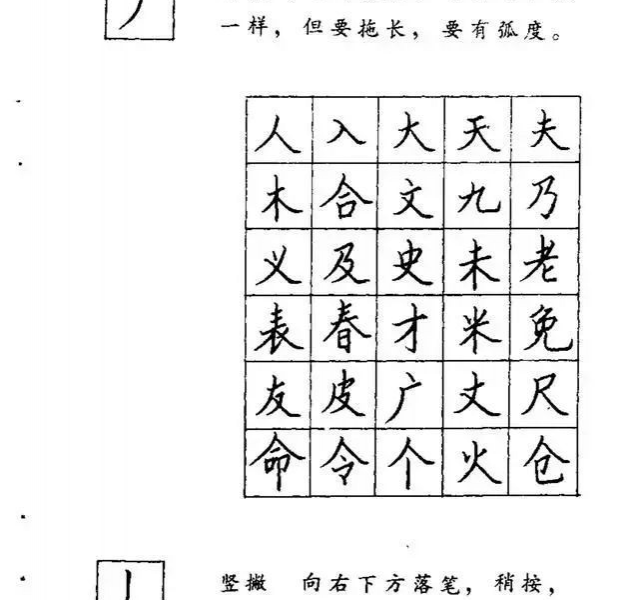 一样，但要拖长，要有弧度。
人入大天夫
木合文九乃
义及史未老
表春才米免
友皮广丈尺
命令个火仓
竖撇 向右下方落笔，稍按，